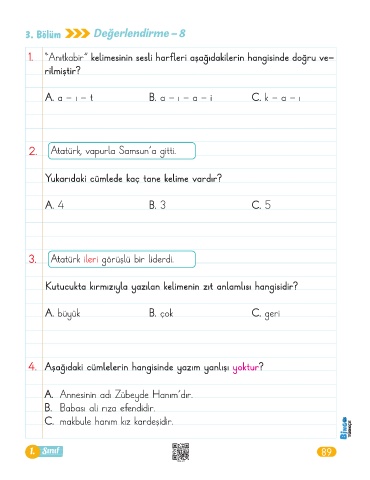 3. Bölüm Değerlendirme – 8
1. "Anıtkabir" kelimesinin sesli harfleri aşağıdakilerin hangisinde doğru ve-
rilmiştir?
A. a – ı – t B. a – ı – a – i C. k – a – ı
2. Atatürk, vapurla Samsun'a gitti.
Yukarıdaki cümlede kaç tane kelime vardır?
A. 4 B. 3 C. 5
3. Atatürk ileri görüşlü bir liderdi.
Kutucukta kırmızıyla yazılan kelimenin zıt anlamlısı hangisidir?
A. büyük B. çok C. geri
4. Aşağıdaki cümlelerin hangisinde yazım yanlışı yoktur?
A. Annesinin adı Zübeyde Hanım'dır.
B. Babası ali rıza efendidir.
C. makbule hanım kız kardeşidir.
1. Sınıf 89